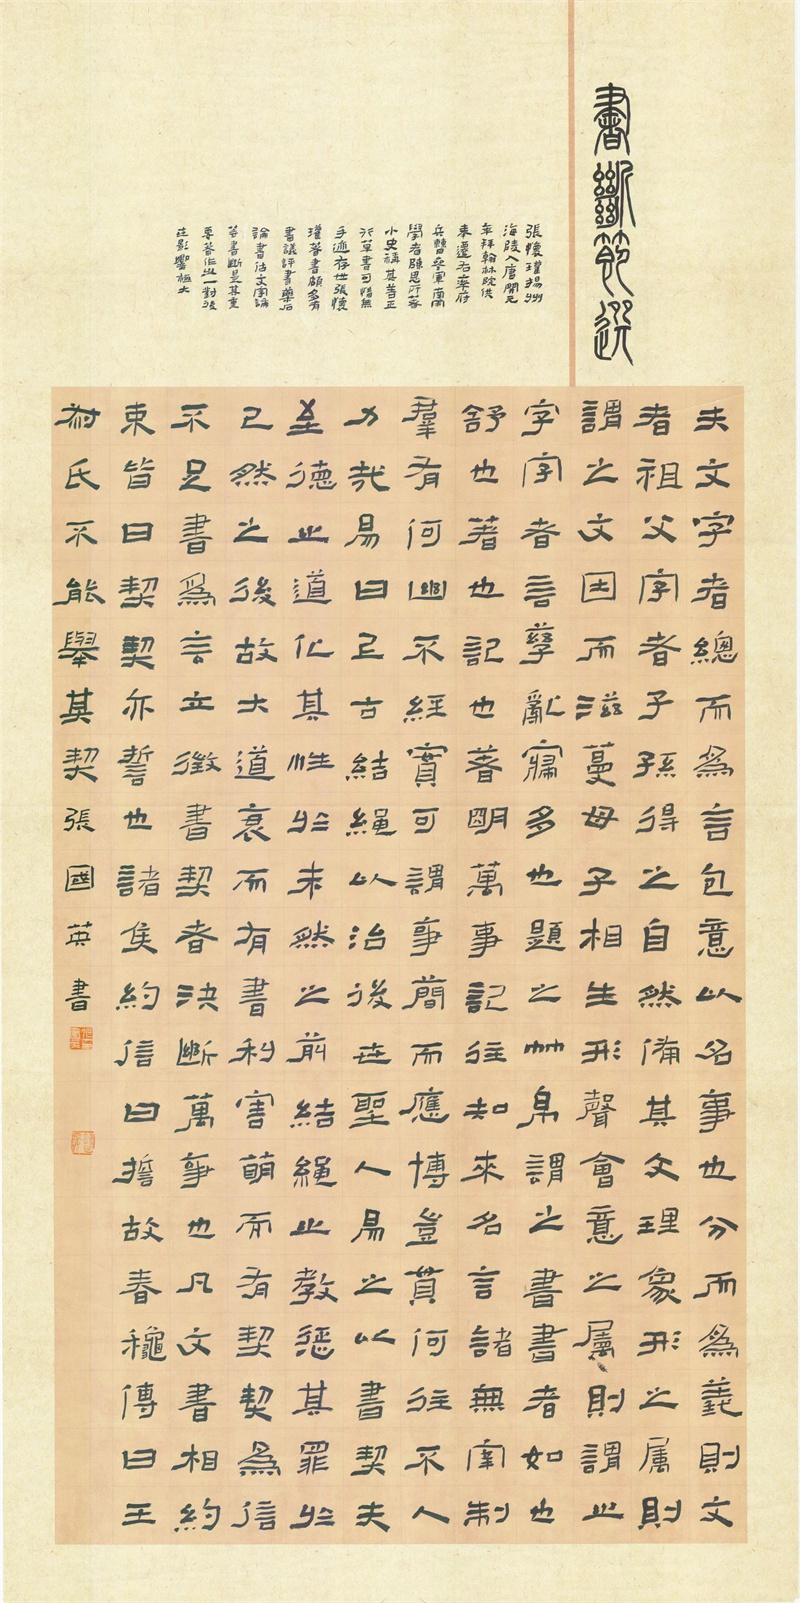 書斷節選
張懷瓘揚州
海陵人唐開元
年拜翰林院供
奉遷右率府
兵曹參軍南宋
學者陳思所著
小史稱其善正
行草書可惜無
手迹存世張懷
瓘著書頗多有
書議評書藥石
論書估文字論
等書斷是其重
要著作也一對後
世影響極大
夫文字者總而為言包意以名事也分而為義則文
者祖父字者子孫得之自然備其文理象形之属則
謂之文因而滋蔓母子相生形聲會意之属則謂之
字字者言孳亂寖多也題之竹帛謂之書書者如也
舒也著也記也著明萬事記往知來名言諸無宰制
羣有何幽不經實可謂事簡而應博豈貫何往不人
力哉易曰已古結繩以治後世聖人易之以書契夫
至德之道化其性於未然之前結繩之教懲其罪於
已然之後故大道衰而有書利害萌而有契契為信
不足書為言立徵書契者決斷萬事也凡文書相約
束皆曰契契亦誓也諸侯約信曰誓故春龝傳曰王
叔氏不能舉其契張國英書